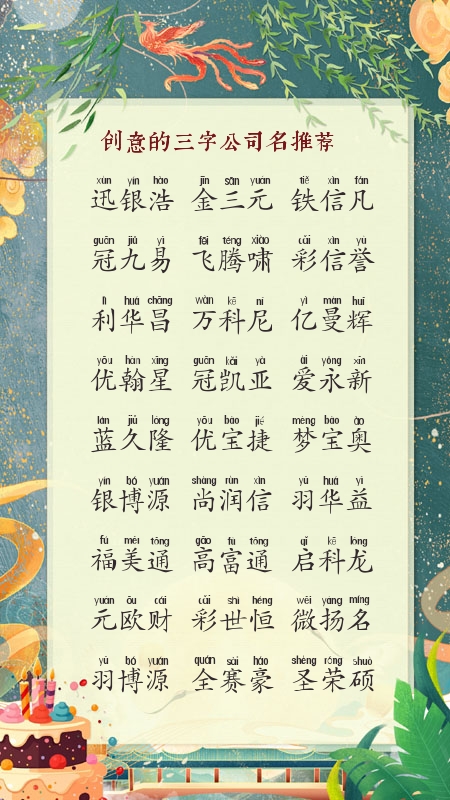 创意的三字公司名推荐
xùn yín hào jīn sān yuán tiě xìn fán
迅银浩 金三元 铁信凡
guān jiǔ yì fēi téng xiào cǎi xìn yù
冠九易 飞腾啸 彩信誉
lì huá chāng wàn kē ní yì màn huī
利华昌 万科尼 亿曼辉
yōu hàn xīng guān kǎi yà ài yǒng xīn
优翰星 冠凯亚 爱永新
lán jiǔ lóng yōu bǎo jié mèng bǎo ào
蓝久隆 优宝捷 梦宝奥
yín bó yuán shàng rùn xìn yǔ huá yì
银博源 尚润信 羽华益
fú měi tōng gāo fù tōng qǐ kē lóng
福美通 高富通 启科龙
yuán ōu cái cǎi shì héng wēi yáng míng
元欧财 彩世恒 微扬名
yǔ bó yuán quán sài háo shèng róng shuò
羽博源 全赛豪 圣荣硕